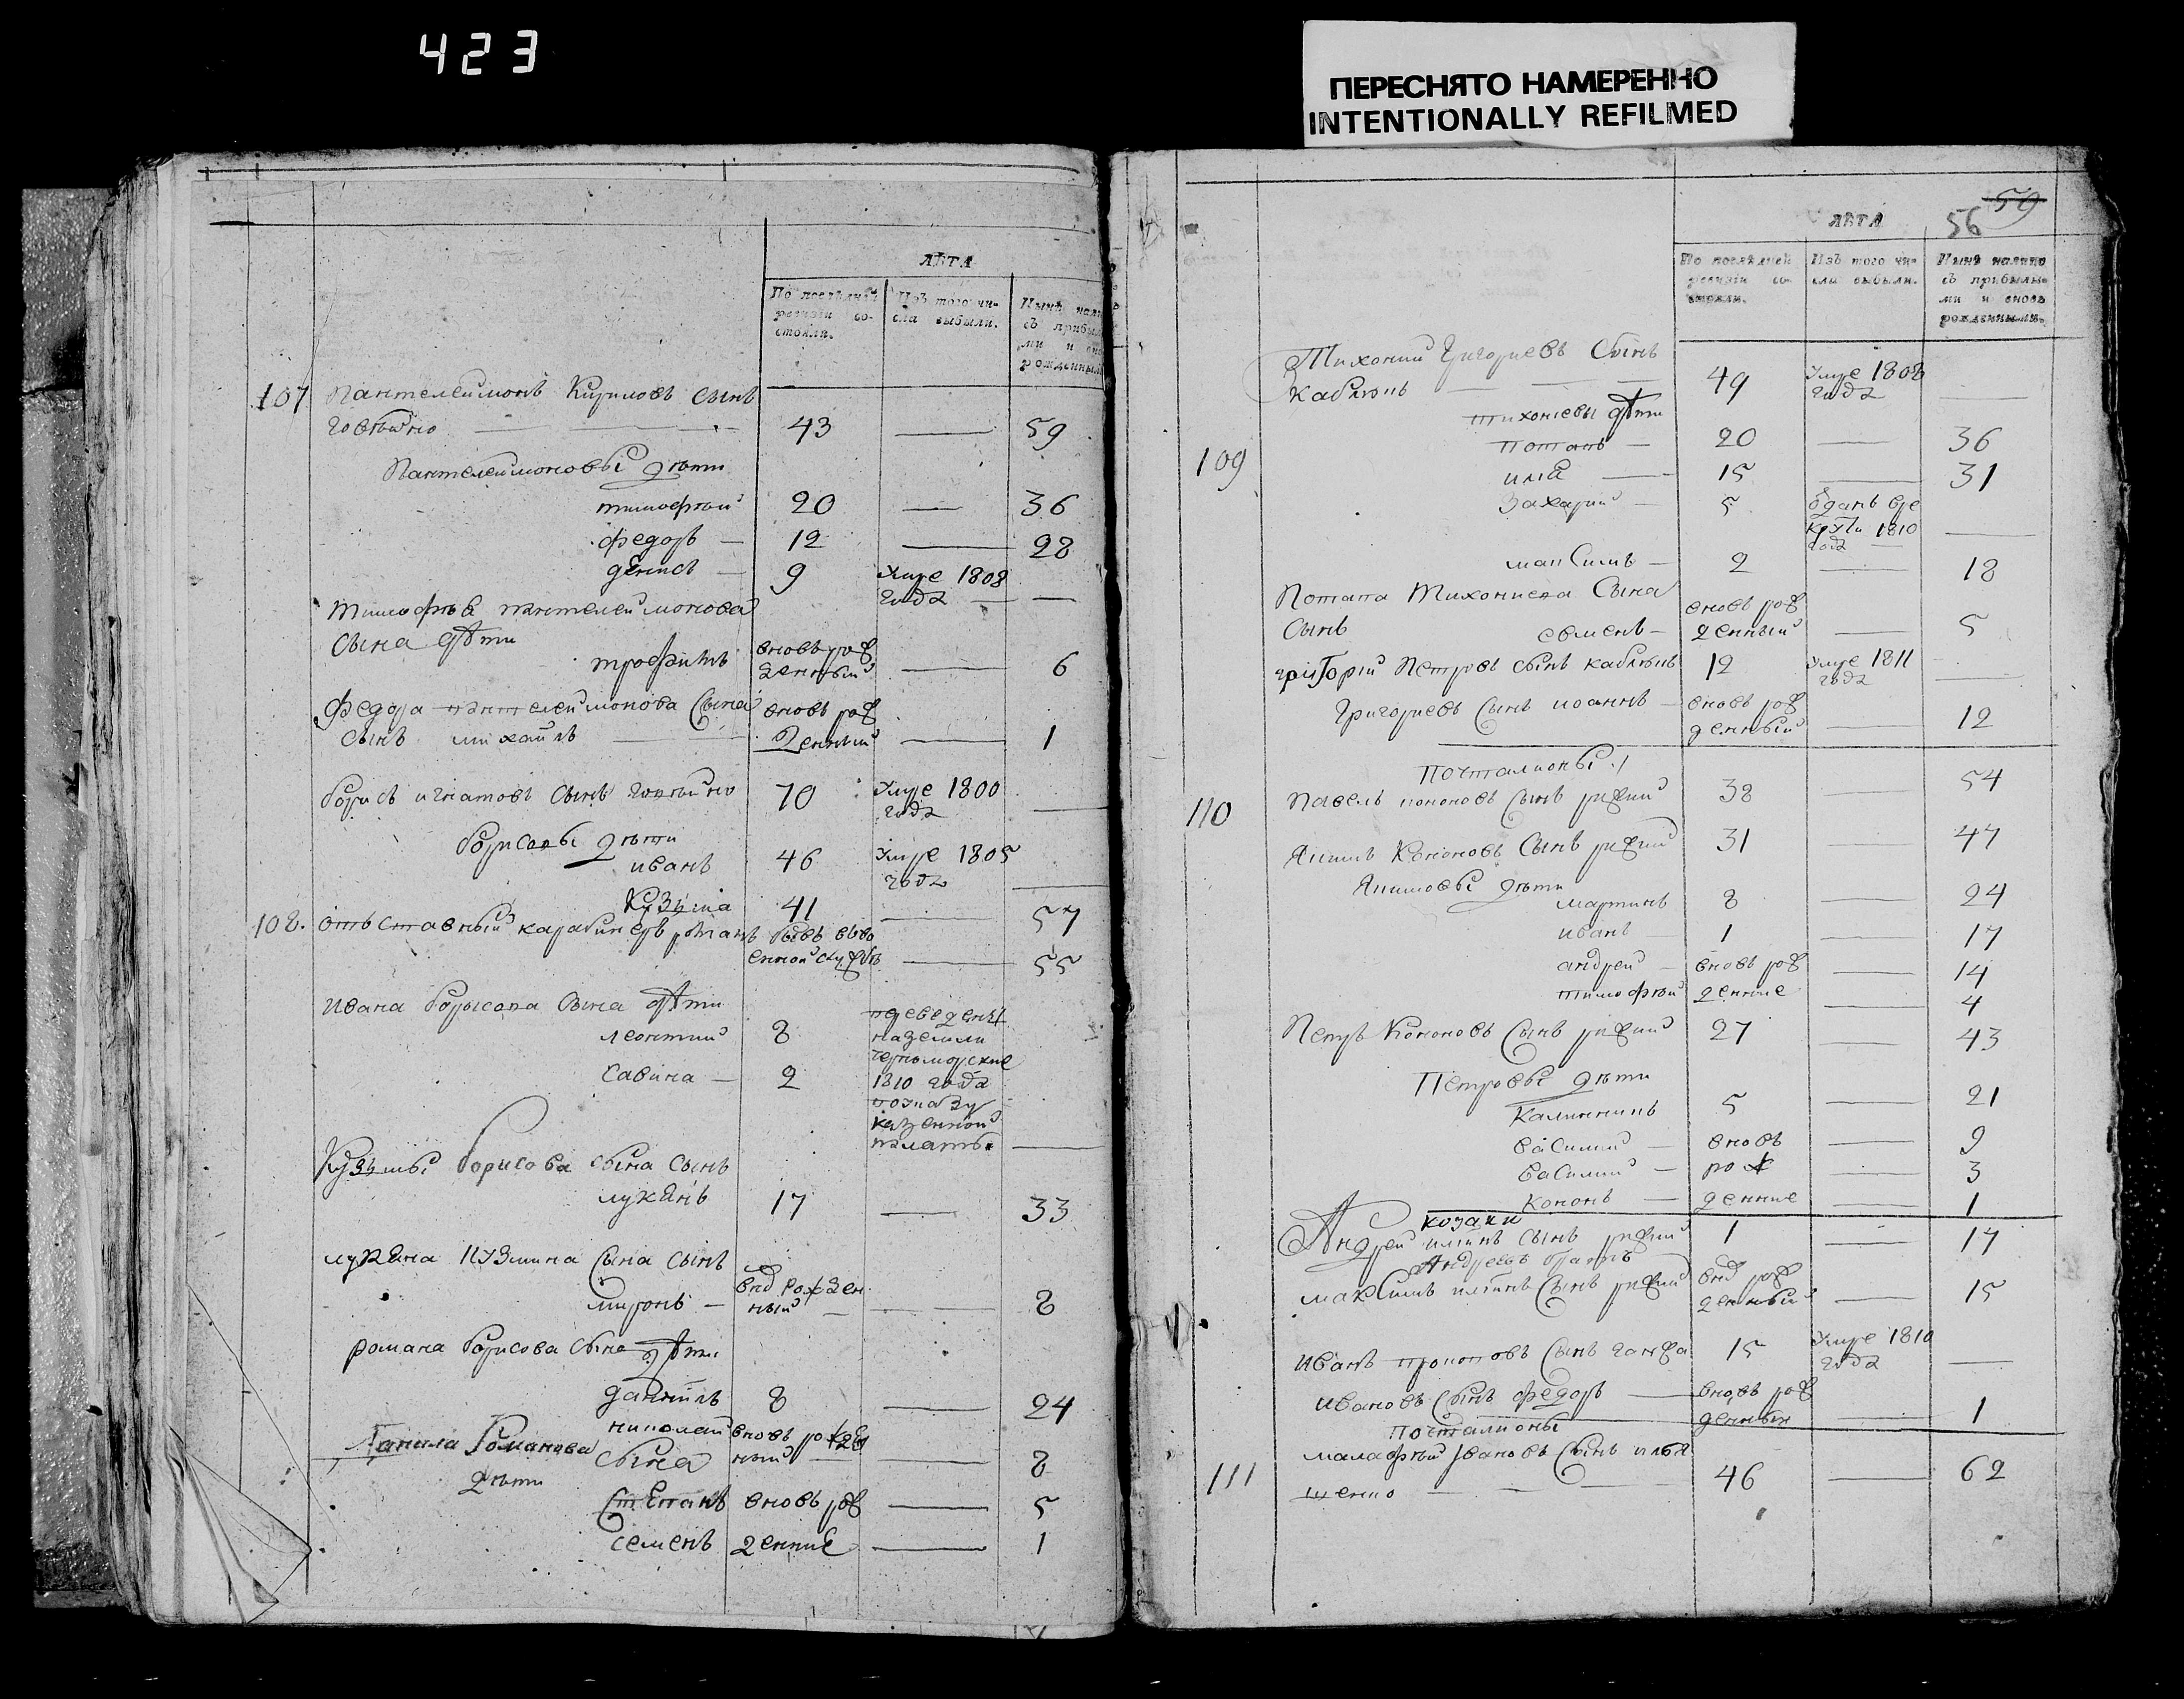 423
ПЕРЕСНЯТО НАМЕРЕННО
INTENTIONALLY REFILMED
ЛѢТА
По послѣдней ревизіи состояли.
Изъ того числа выбыли.
Нынѣ нали
съ прибы
ми и вно
рожденным
107 Пантелеимонъ Кириловъ сынъ
43 — 59
Пантелеимоновы дѣти
тимофѣй 20 — 36
федоръ — 12 — 28
денисъ — 9 умре 1808 года —
тимофѣя пантелеимонова
сына дѣти
трофимъ вновь рожденный — 6
федора пантелеимонова сына
сынъ михаилъ вновь рожденный — 1
борисъ игнатовъ сынъ 70 умре 1800 года —
борисовы дѣти
иванъ 46 умре 1805 года —
Кузьма 41 — 57
108. отъставный карабинеръ романъ былъ въ военной службѣ — 55
ивана борысова сына дѣти
леонтий 8 переведены
савина — 2 на земли черноморские 1810 года по указу казенной палаты —
Кузьмы борисова сына сынъ
лукянъ 17 — 33
лукяна кузмина сына сынъ
миронъ — вно рожденный — 8
романа борисова сына дѣти
данилъ 8 — 24
николай вновь рожденный — 8
Данила Романова сына
дѣти
степанъ вновь рож — 5
семенъ денние — 1
59
56
ЛѢТА
По послѣдней ревизіи состояли.
Изъ того числа выбыли.
Нынѣ налицо
съ прибылы-
ми и вновь
рожденными.
Тихоний Григориевъ Сынъ
49 умре 1808 года —
тихониевы дѣти
109 потапъ — 20 — 36
илия — 15 — 31
Захарий — 5 отданъ въ рекруты 1810 года —
максимъ — 2 — 18
Потапа Тихониева Сына
сынъ семенъ — вновь рожденный — 5
григорий Петровъ сынъ 12 умре 1811 года —
Григориевъ сынъ иоаннъ — вновь рожденный — 12
почталионы
110 Павелъ кононовъ сынъ рижий 38 — 54
Якимъ Кононовъ сынъ рижий 31 — 47
Якимовы дѣти
мартинъ 8 — 24
иванъ 1 — 17
андрей — вновь рож — 14
тимофѣй денние — 4
Петръ Кононовъ сынъ рижий 27 — 43
Петровы дѣти
калинникъ 5 — 21
василий — вновь — 9
василий — рож — 3
кононъ — денние — 1
козаки
Андрей илинъ сынъ рижий 1 — 17
Андреевъ братъ
максимъ илинъ сынъ рижий вно рожденный — 15
иванъ прокоповъ сынъ ганжа 15 умре 1810 года —
ивановъ сынъ федоръ — вновь рожденный — 1
почталионы
111 малафѣй ивановъ сынъ илья
шенко — 46 — 62